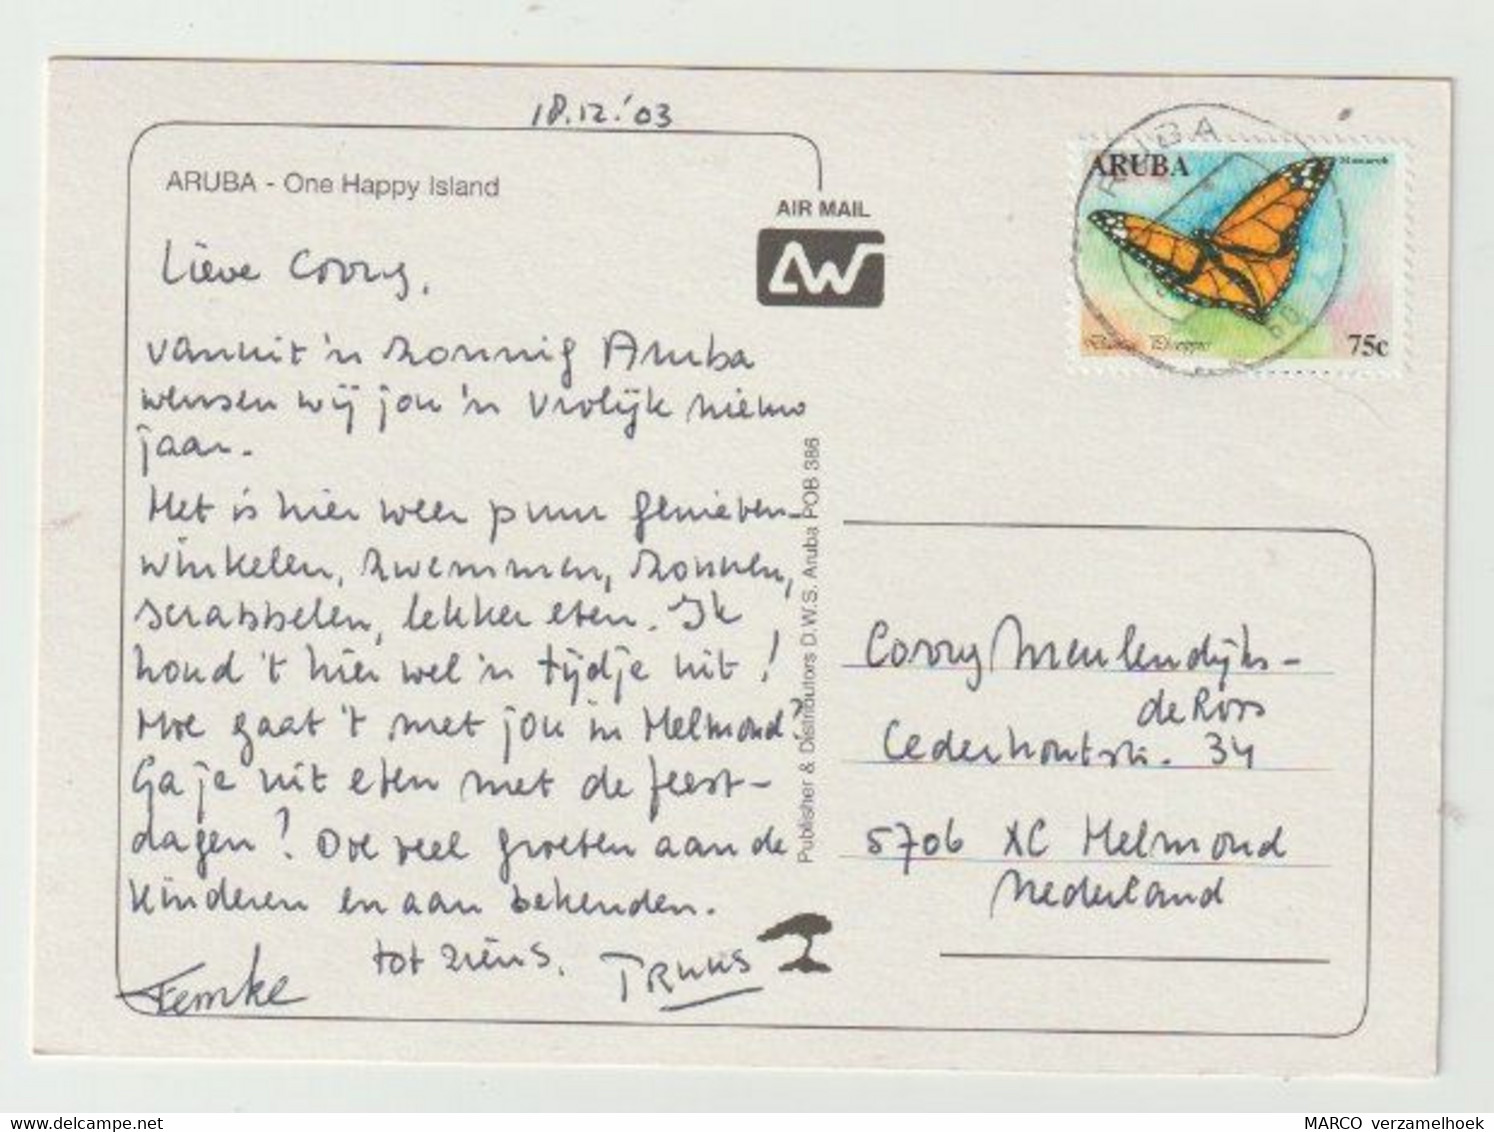 18.12.'03
ARUBA - One Happy Island
Lieve Corry,
vanuit 'n zonnig Aruba
wensen wij jou 'n vrolijk nieuw
jaar.
Het is hier weer puur genieten-
winkelen, zwemmen, zonnen,
scrabbelen, lekker eten. Ik
houd 't hier wel 'n tijdje uit!
Hoe gaat 't met jou in Helmond?
Ga je uit eten met de feest-
dagen? Doe veel groeten aan de
kinderen en aan bekenden.
tot ziens. Truus
Femke
AIR MAIL
AW
Publisher & Distributors D.W.S. Aruba POB 386
ARUBA
ARUBA
Monarch
75c
Corry Meulendijks-
de Roos
Cederhoutstr. 34
5706 XC Helmond
Nederland
MARCO verzamelhoek